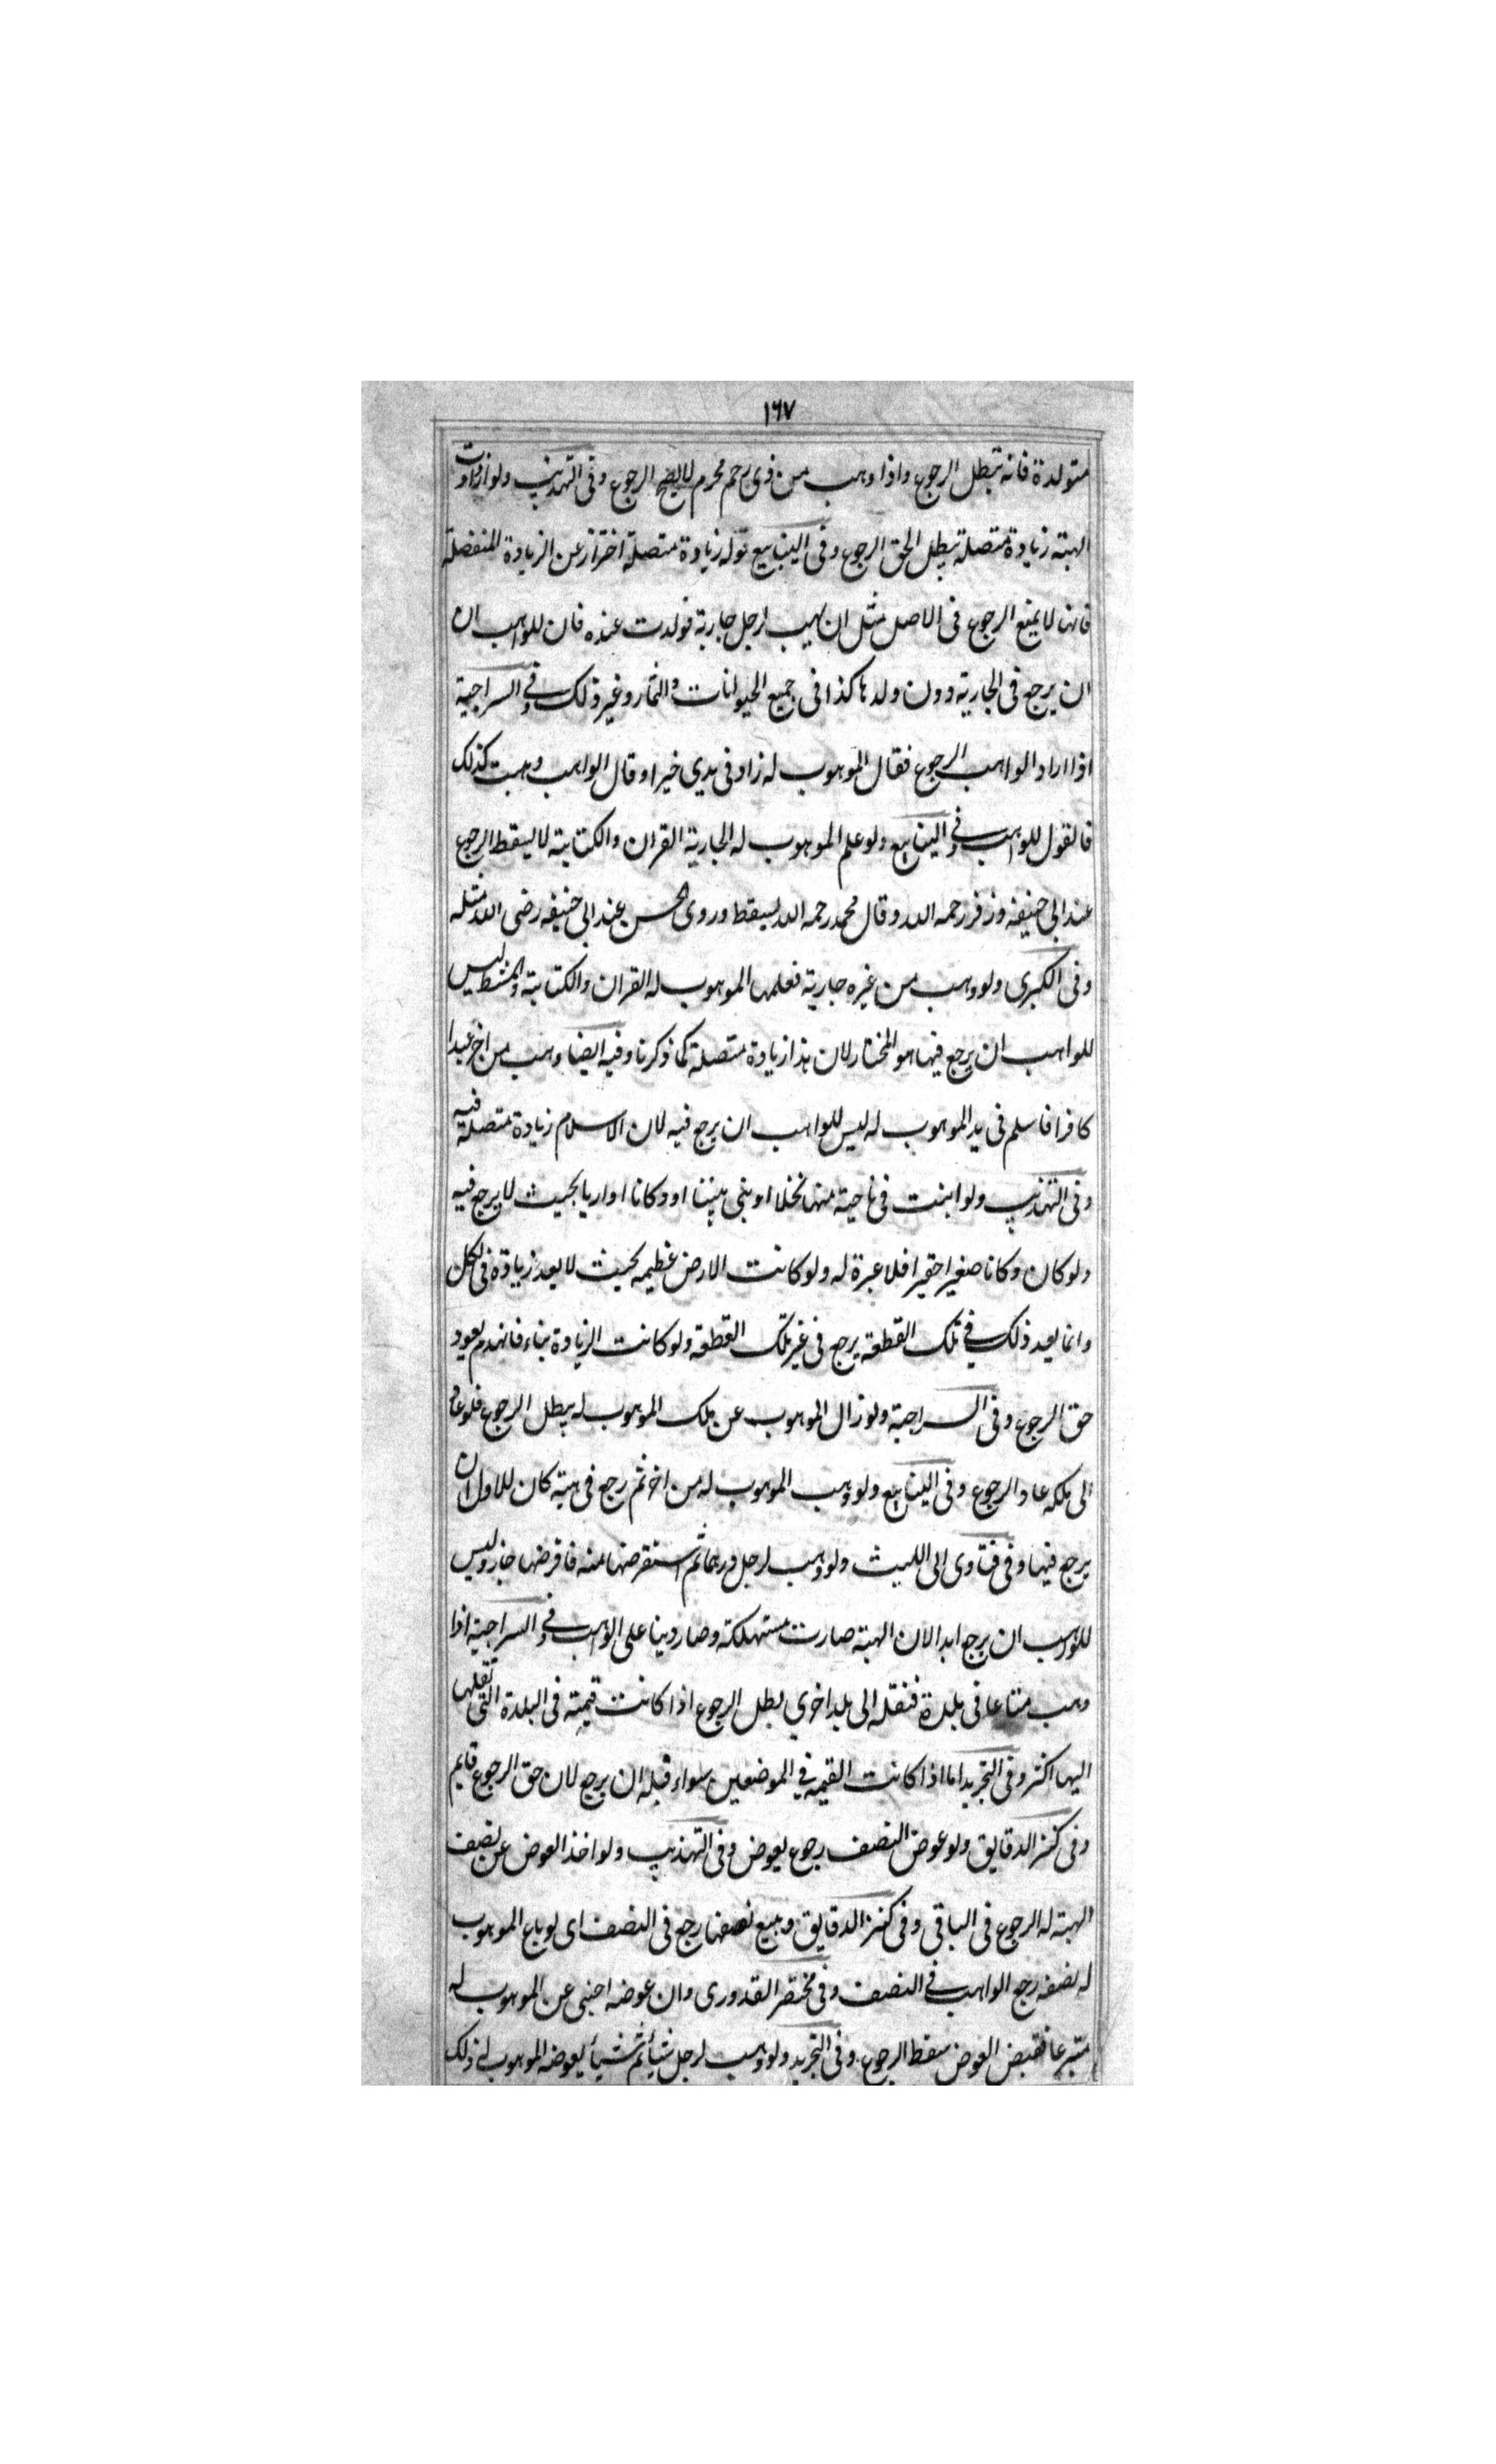 ١٦٧
متولدة فانه تبطل الرجوع واذا وهب من ذى رحم محرم لا يصح الرجوع وفى التهذيب ولو ازدادت
الهبته زيادة متصلة يبطل الحق الرجوع وفى الينابيع قوله زيادة متصلة احتراز عن الزيادة المنفصلة
فانها لا يمنع الرجوع فى الاصل مثل ان يهب لرجل جارية فولدت عنده فان للواهب ان
ان يرجع فى الجارية دون ولدها كذا فى جميع الحيوانات والثمار وغير ذلك وفى السراجية
اذا اراد الواهب الرجوع فقال الموهوب له زاد فى يدي خيرا وقال الواهب وهبت كذلك
فالقول للواهب وفى الينابيع ولو علم الموهوب له الجارية القران والكتابة لا يسقط الرجوع
عند ابى حنيفة وزفر رحمه الله وقال محمد رحمه الله يسقط وروى الحسن عند ابى حنيفه رضى الله مثله
وفى الكبرى ولو وهب من غيره جارية فعلمها الموهوب له القران والكتابة والمشط ليس
للواهب ان يرجع فيها هو المختار لان هذا زيادة متصلة كما ذكرنا وفيه ايضا وهب من اخر عبدا
كافرا فاسلم فى يد الموهوب له ليس للواهب ان يرجع فيه لان الاسلام زيادة متصلة فيه
وفى التهذيب ولو ابنت فى ناحية منها نخلا او بنى بيتا او دكانا او اريا بحيث لا يرجع فيه
ولو كان دكانا صغيرا حقيرا فلا عبرة له ولو كانت الارض عظيمه بحيث لا يعد زيادة فى الكل
وانما يعد ذلك فى تلك القطعة يرجع فى غير تلك القطعة ولو كانت الزيادة بناء فانهدم يعود
حق الرجوع وفى السراجية ولو زال الموهوب عن ملك الموهوب له يبطل الرجوع فلو عاد
الى ملكه عاد الرجوع وفى الينابيع ولو وهب الموهوب له من اخر ثم رجع فى هبة كان للاول ان
يرجع فيها وفى فتاوى ابى الليث ولو وهب لرجل درهما ثم استقرضها منه فاقرضها جاز وليس
للواهب ان يرجع ابدا لان الهبة صارت مستهلكة وصار دينا على الواهب وفى السراجية اذا
وهب متاعا فى بلدة فنقله الى بلد اخرى بطل الرجوع اذا كانت قيمة فى البلدة التى نقلها
اليها اكثر وفى التجريد اما اذا كانت القيمه فى الموضعين سواء فله ان يرجع لان حق الرجوع قايم
وفى كنز الدقايق ولو عوض النصف رجع يعوض وفى التهذيب ولو اخذ العوض عن نصف
الهبته له الرجوع فى الباقى وفى كنز الدقايق وبيع نصفها رجع فى النصف اى لو باع الموهوب
له نصفه رجع الواهب فى النصف وفى مختصر القدورى وان عوضه اجنبى عن الموهوب له
متبرعا فقبض العوض سقط الرجوع وفى التجريد ولو وهب لرجل شيأ ثم شيأ يعوضه الموهوب له ذلك